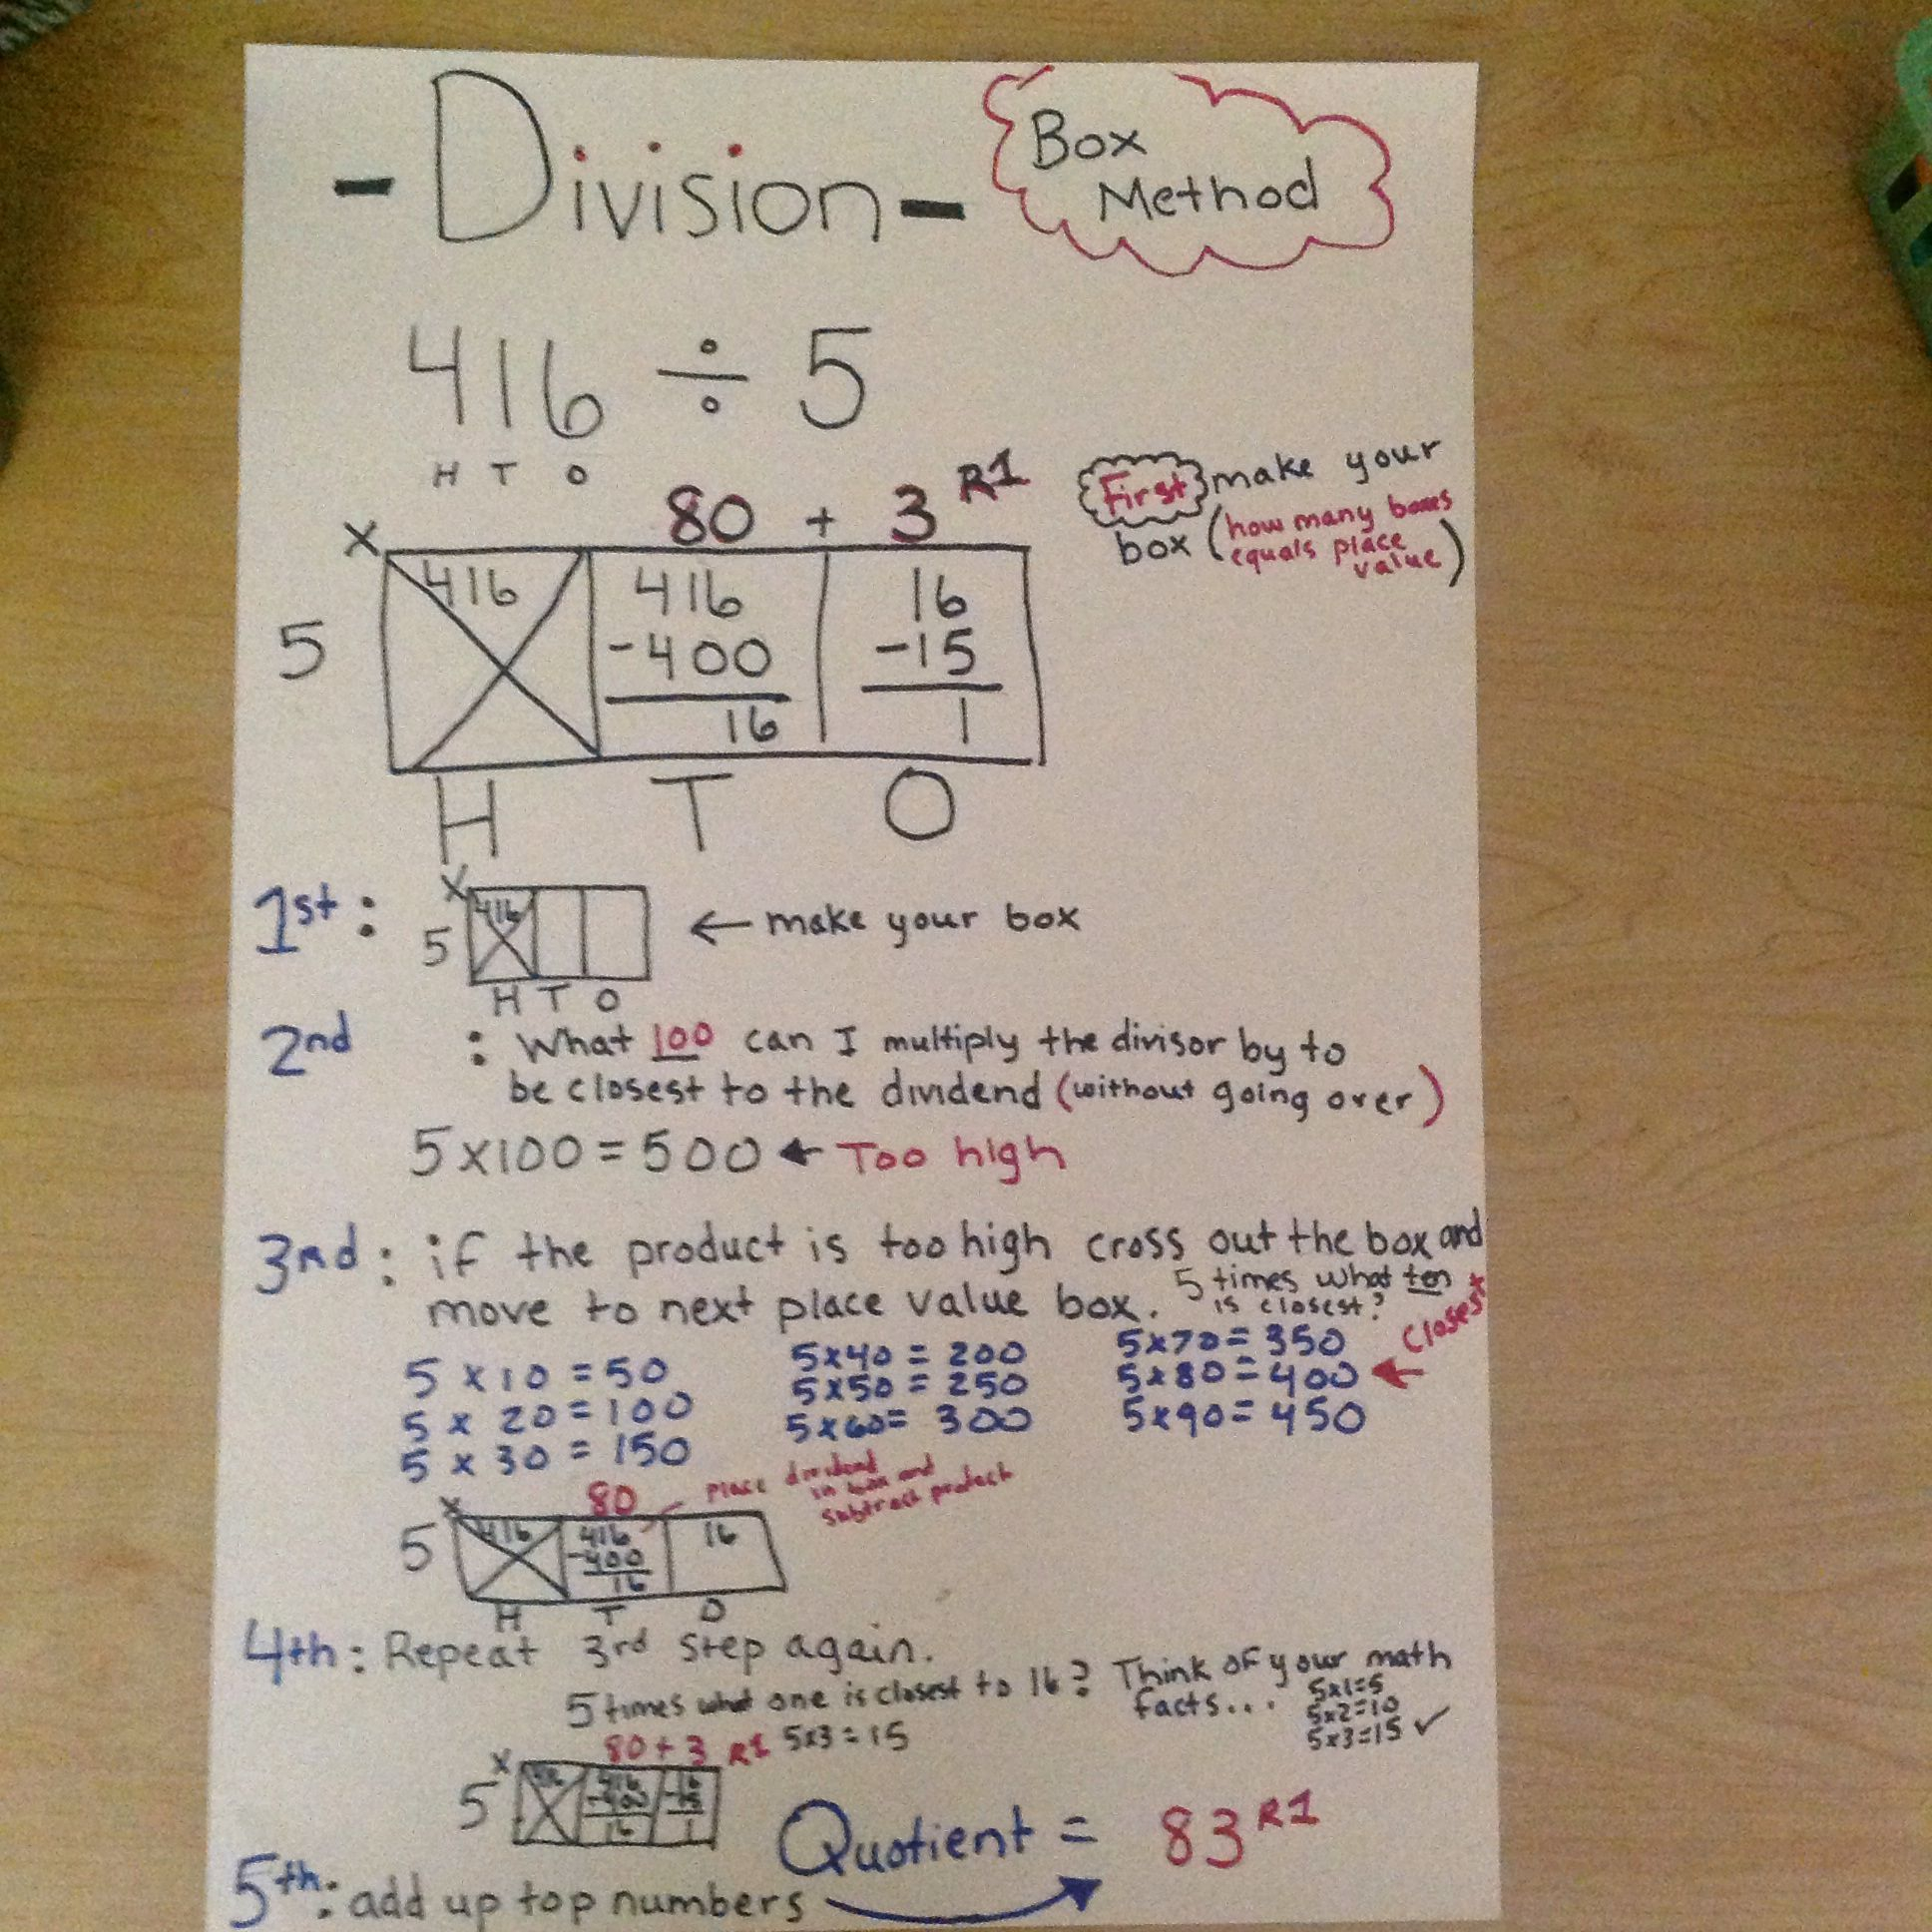 - Division -
Box
Method
416 ÷ 5
H T O
80 + 3 R1
First make your
box (how many boxes
equals place
value)
X
5
416
416
-400
16
16
-15
1
H T O
1st:
X
5
416
H T O
← make your box
2nd : What 100 can I multiply the divisor by to
be closest to the dividend (without going over)
5x100=500 ← Too high
3rd: if the product is too high cross out the box and
move to next place value box. 5 times what ten
is closest?
5 x 10 = 50
5 x 20 = 100
5 x 30 = 150
5x40 = 200
5x50 = 250
5x60= 300
5x70= 350
5x80=400 ← Closest
5x90=450
80
Place dividend
in box and
subtract product
X
5
416
416
-400
16
16
H T O
4th: Repeat 3rd step again.
5 times what one is closest to 16? Think of your math
facts...
5x1=5
5x2=10
5x3=15 ✓
80+3 R1 5x3=15
X
5
416
416
-400
16
16
-15
1
Quotient = 83 R1
5th: add up top numbers